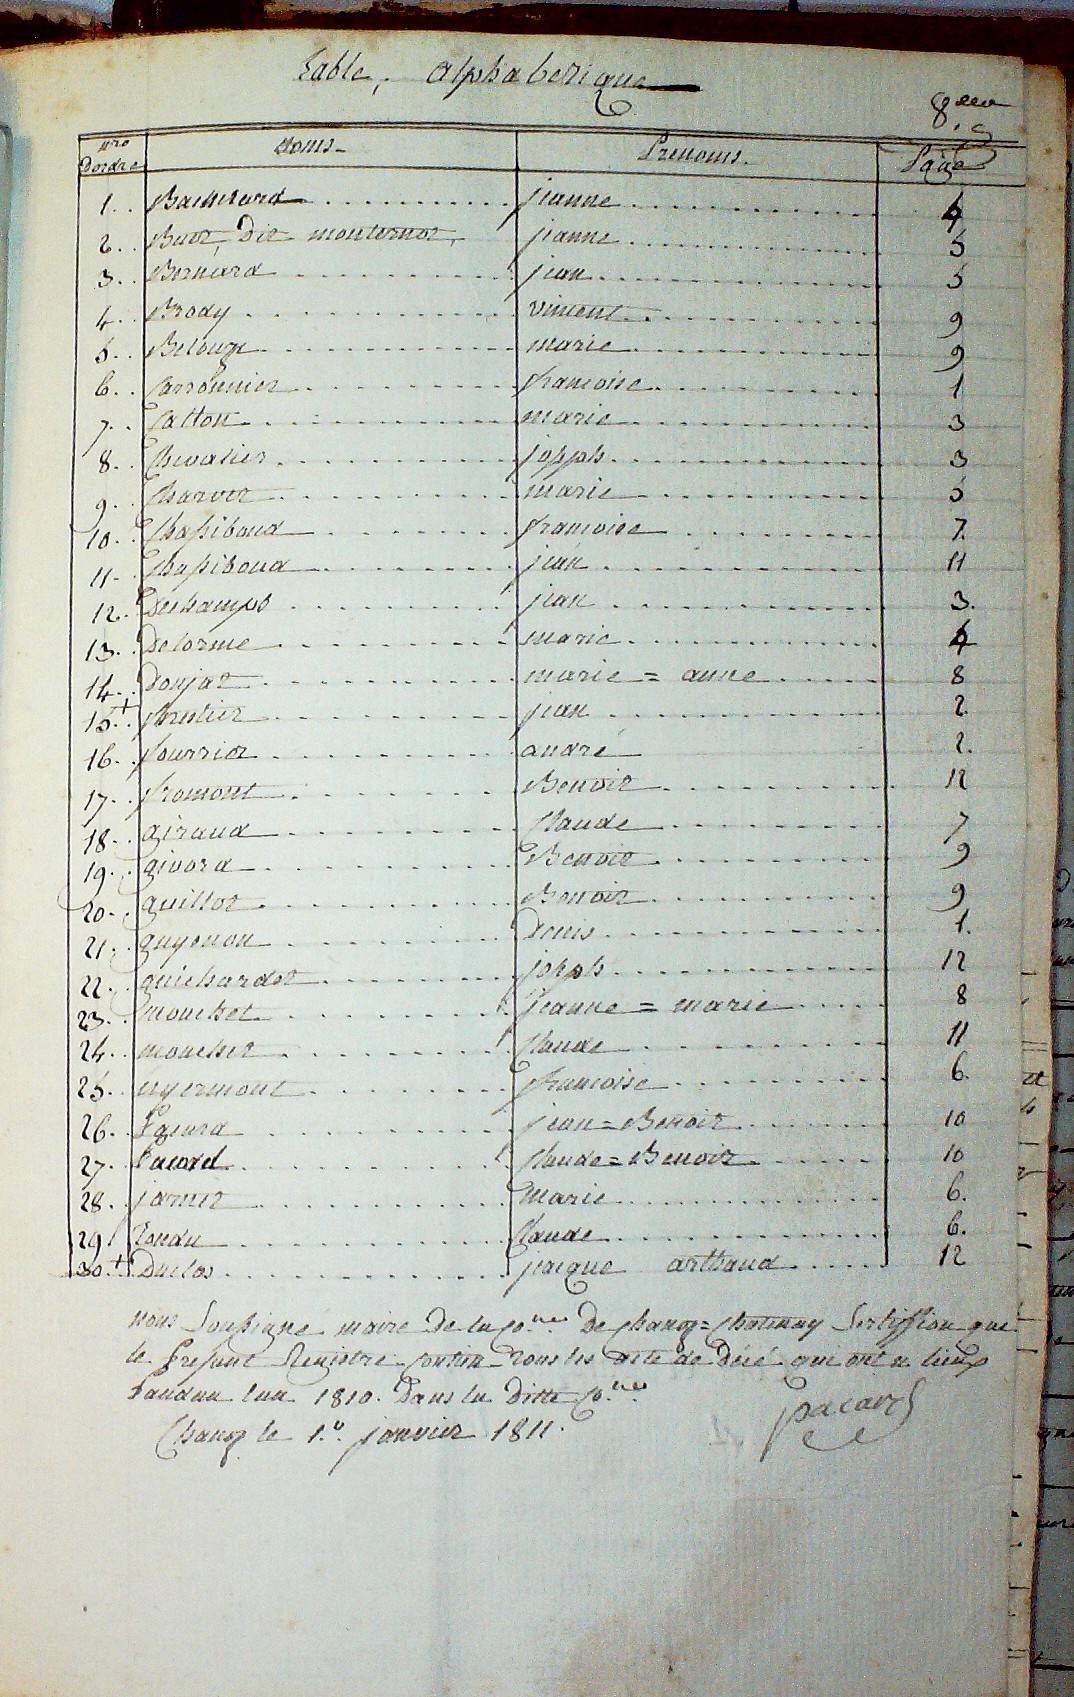 Table, alphabetique
8
nro Dordre Noms Prenoms. Page
1. Jeanne 4
2. Buet Dit monternot, jeanne 5
3. Bernard jean 5
4. Brody vincent 9
5. Belouze marie 9
6. Carronnier francoise 1
7. Catton marie 3
8. Chevalier joseph 3
9. Charvet marie 5
10. Chapiboud francoise 7.
11. Chapiboud jean 11
12. Deschamps jean 3.
13. Delorme marie 4
14. Donjat marie = anne 8
15.+ forestier jean 2
16. fourrier andré 2.
17. fromont Benoit 12
18. giraud Claude 7
19. givord Benoit 9
20. guillot Benoit 9
21. guyonon Denis 1.
22. guichardet joseph 12
23. mouchet jeanne = marie 8
24. mouchet Claude 11
25. niermont francoise 6.
26. Pacard jean = Benoit 10
27. Pacard Claude = Benoit 10
28. marie 6.
29. Claude 6.
30.+ Duclos jacque arthaud 12
nous Soussigne maire De la Cone De Chanoz = Chatenay Sertiffion que
le present Registre Contien tous les acte de décé qui ont u lieux
Pandan lan 1810. Dans la Ditte Cone
pacard
Chanoz le 1.er janvier 1811.